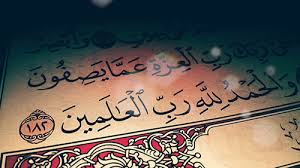 رَبِّ ٱلْعِزَّةِ عَمَّا يَصِفُونَ
وَٱلْحَمْدُ لِلَّهِ رَبِّ ٱلْعَٰلَمِينَ ١٨٢